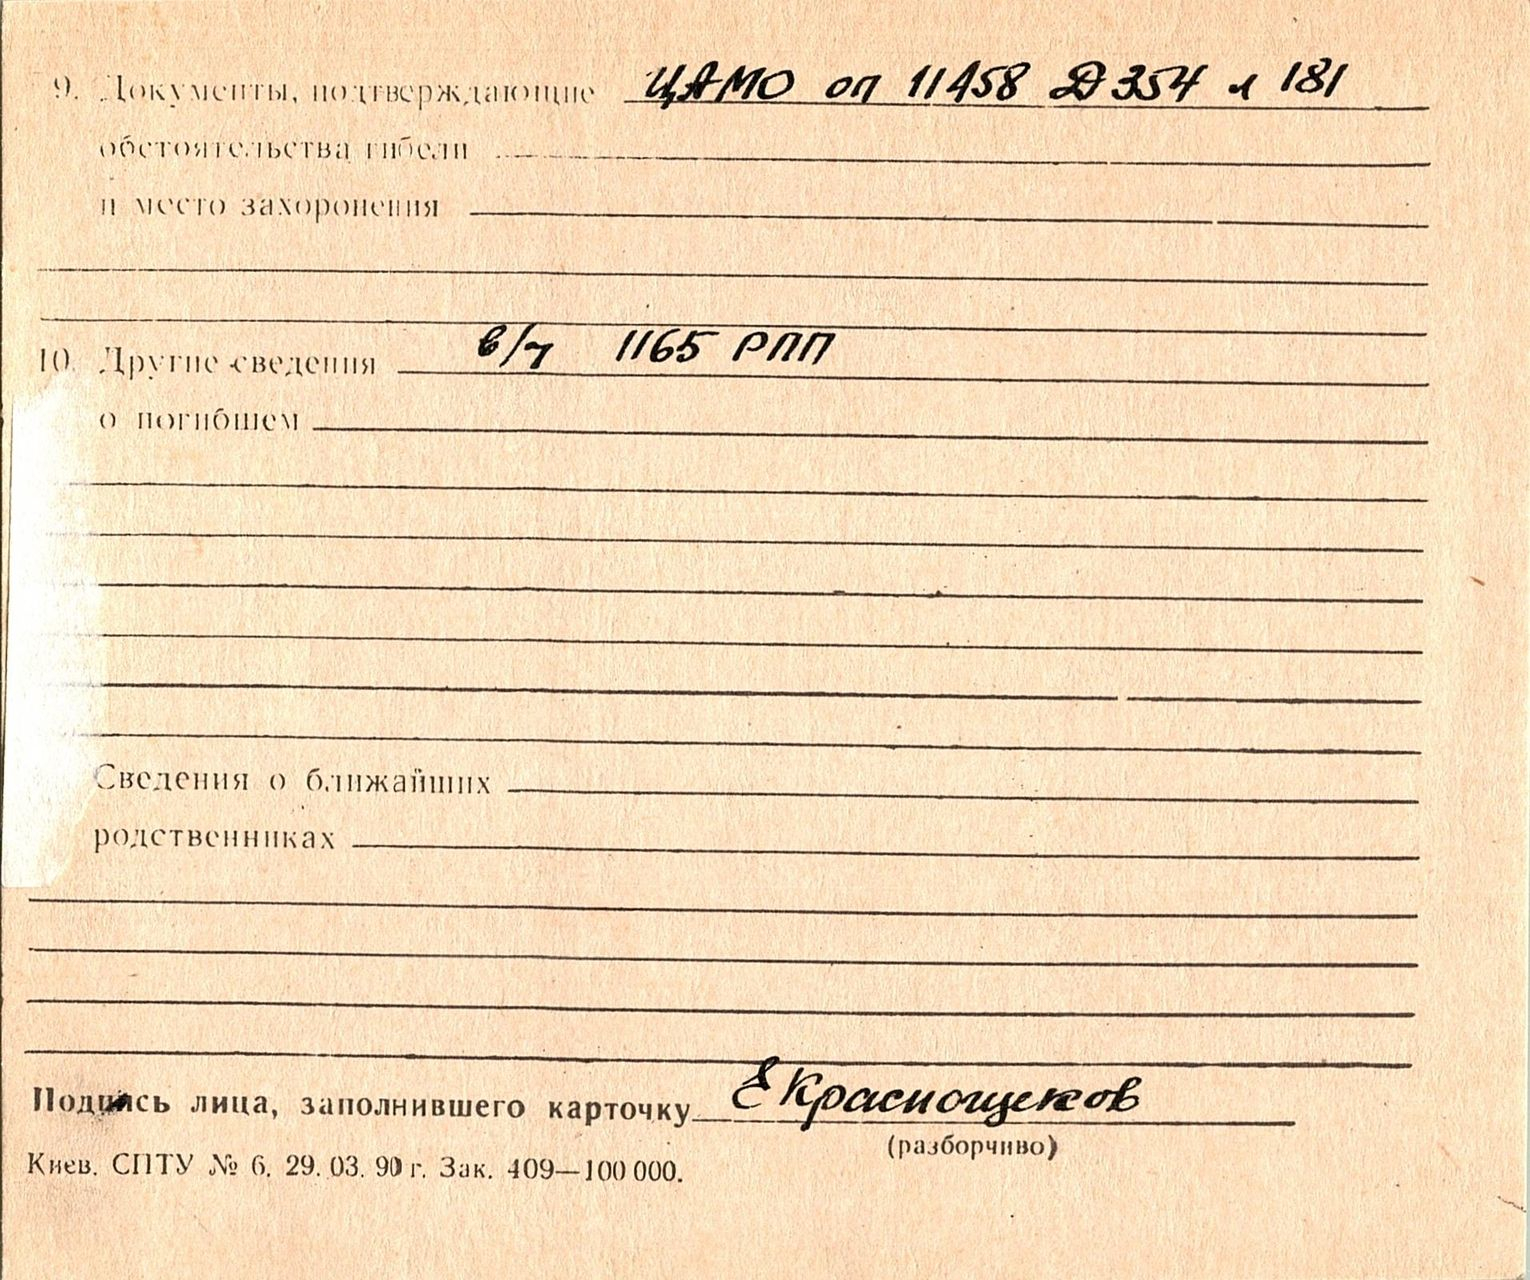 9. Документы, подтверждающие ЦАМО оп 11458 Д 354 л 181
обстоятельства гибели
и место захоронения
10. Другие сведения в/ч 1165 РПП
о погибшем
Сведения о ближайших
родственниках
Подпись лица, заполнившего карточку Е Краснощеков
(разборчиво)
Киев. СПТУ № 6. 29. 03. 90 г. Зак. 409—100 000.